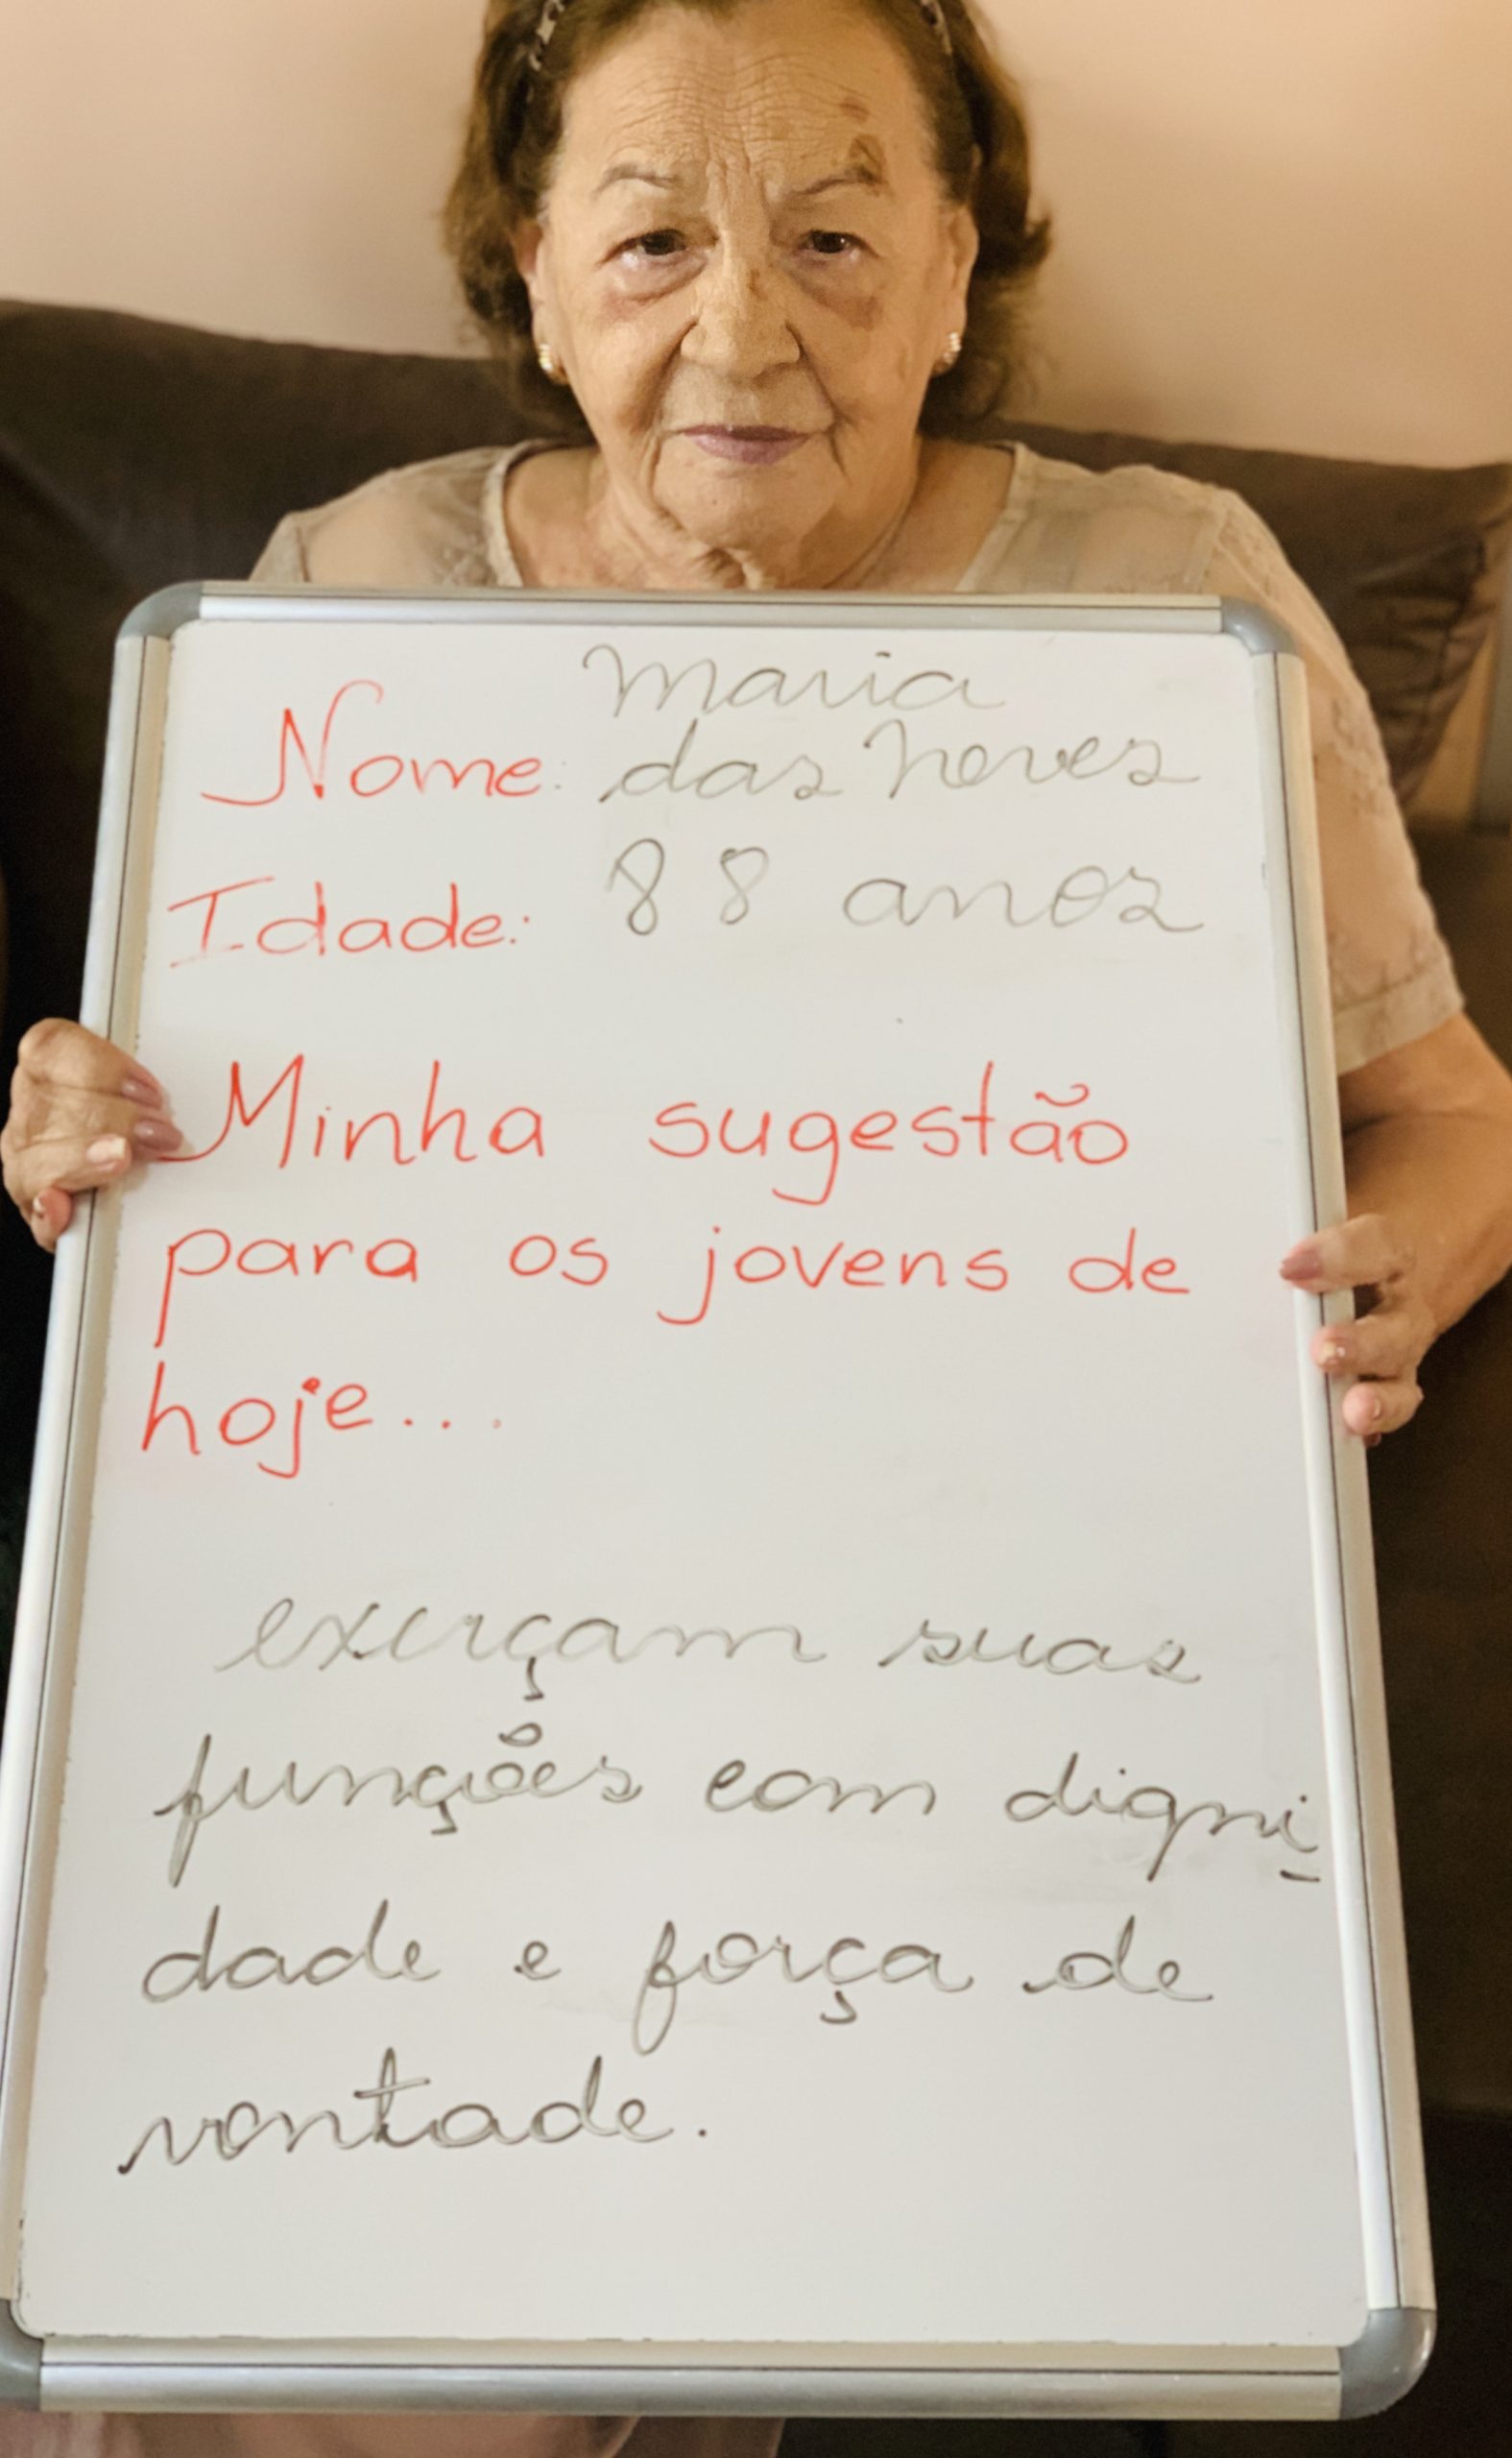 Nome: Maria
das neves
Idade: 88 anos
Minha sugestão
para os jovens de
hoje...
exerçam suas
funções com digni
dade e força de
vontade.